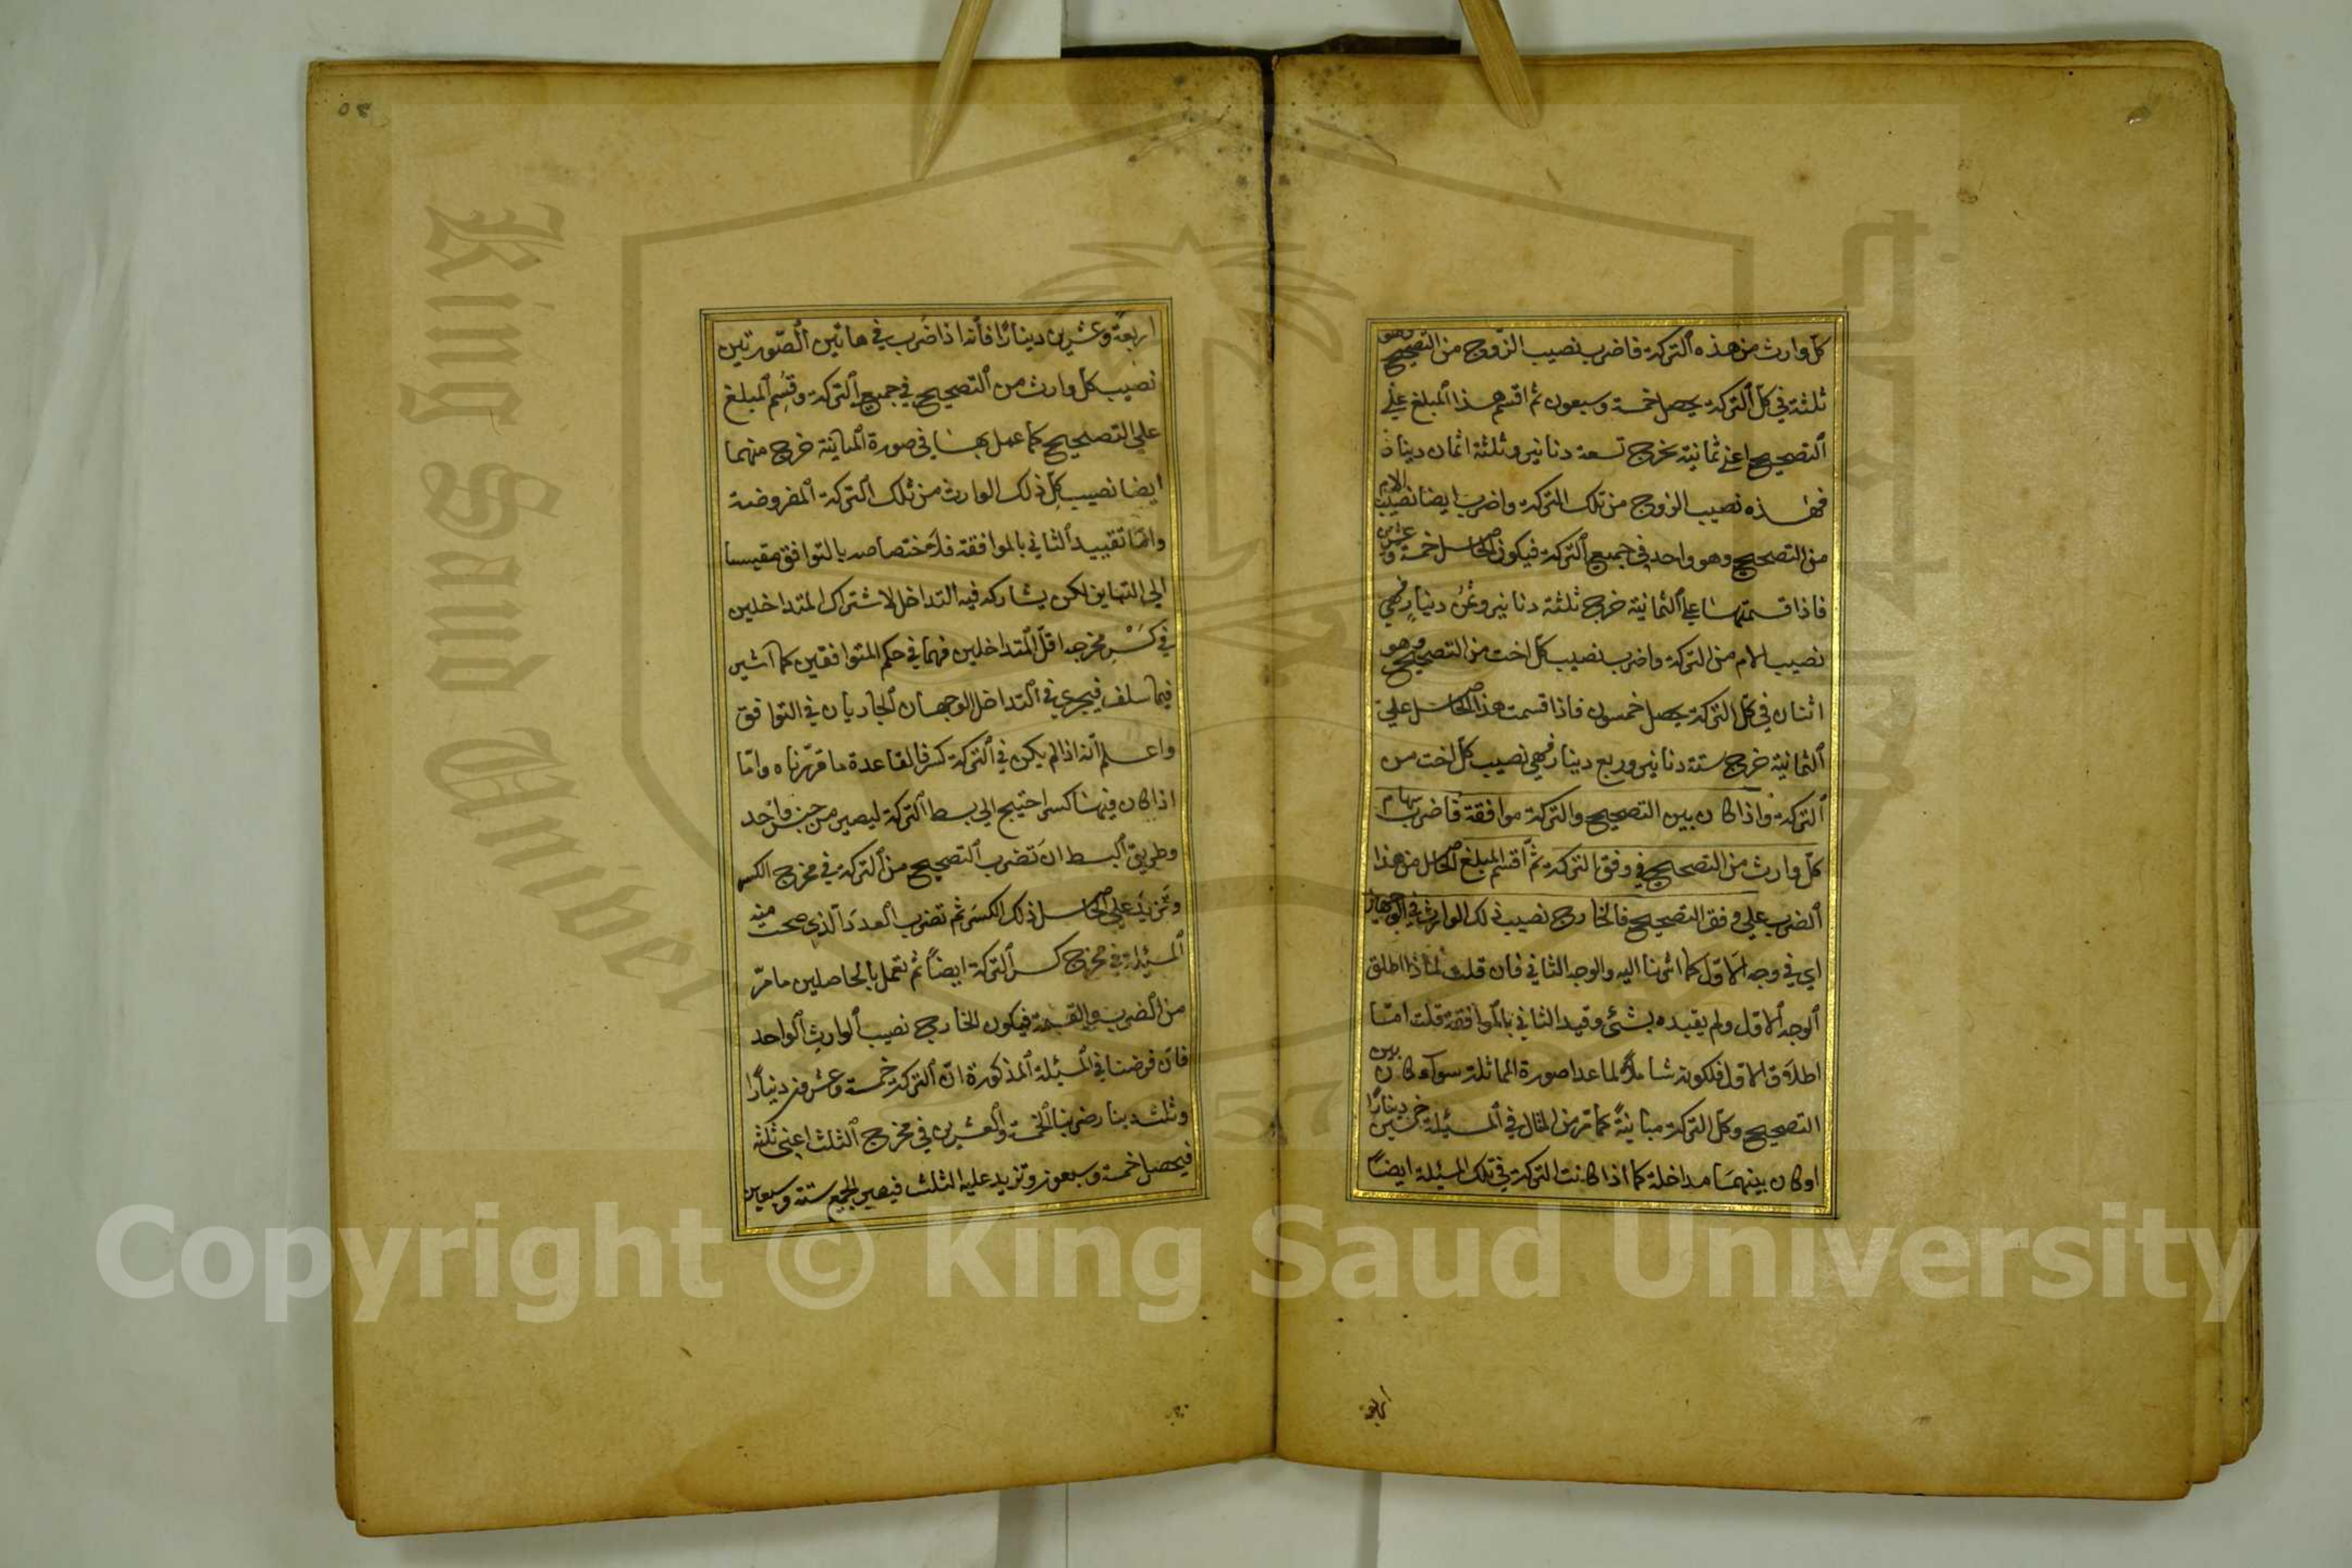 كل وارث من هذه التركة فاضرب نصيب الزوج من التصحيح وهو
ثلثة في كل التركة يحصل خمسة وسبعون ثم اقسم هذا المبلغ علي
التصحيح اعني ثمانية يخرج تسعة دنانير وثلثة اثمان دينار
فهذه نصيب الزوج من تلك التركة واضرب ايضا نصيب الام
من التصحيح وهو واحد في جميع التركة فيكون الحاصل خمسة وعشرين
فاذا قسمتها علي الثمانية خرج ثلثة دنانير وثمن دينار فهي
نصيب الام من التركة واضرب نصيب كل اخت من التصحيح وهو
اثنان في كل التركة يحصل خمسون فاذا قسمت هذا الحاصل علي
الثمانية خرج ستة دنانير وربع دينار فهي نصيب كل اخت من
التركة واذا كان بين التصحيح والتركة موافقة فاضرب سهام
كل وارث من التصحيح في وفق التركة ثم اقسم المبلغ الحاصل من هذا
الضرب علي وفق التصحيح فالخارج نصيب ذلك الوارث في الوجهين
اي في وجه الاول كما اشرنا اليه والوجه الثاني فان قلت لماذا اطلق
الوجه الاول ولم يقيده بشئ وقيد الثاني بالموافقة قلت امّا
اطلاق الاول فلكونه شاملاً لما عدا صورة المماثلة سوآء كان بين
التصحيح وكل التركة مباينةً كما مر من المثال في المسئلة خمسين دينارًا
او كان بينهما مداخلة كما اذا كانت التركة في تلك المسئلة ايضاً
اربعة
٥٤
اربعة وعشرين دينارًا فانه اذا ضرب في هاتين الصّورتين
نصيب كل وارث من التصحيح في جميع التركة وقسم المبلغ
علي التصحيح كما عمل بها في صورة المباينة خرج منهما
ايضا نصيب كل ذلك الوارث من تلك التركة المفروضة
وامّا تقييد الثاني بالموافقة فلاختصاصه بالتوافق مقيسا
الي التباين لكن يشاركه فيه التداخل لاشتراك المتداخلين
في كسر مخرجه اقل المتداخلين فهما في حكم المتوافقين كما اشير
فيما سلف فيجري في التداخل الوجهان الجاريان في التوافق
واعلم انه اذا لم يكن في التركة كسر فالقاعدة ما قرّرناه وامّا
اذا كان فيها كسر احتيج الي بسط التركة ليصير من جنس واحد
وطريق البسط ان تضرب التصحيح من التركة في مخرج الكسر
وتزيد علي الحاصل ذلك الكسر ثم تضرب العدد الّذي صحت منه
المسئلة في مخرج كسر التركة ايضاً ثم تعمل بالحاصلين ما مرّ
من الضرب والقسمة فيكون الخارج نصيب الوارث الواحد
فان فرضنا في المسئلة المذكورة انّ التركة خمسة وعشرون دينارًا
وثلث دينار ضربنا الخمسة والعشرين في مخرج الثلث اعني ثلثة
فيحصل خمسة وسبعون وتزيد عليه الثلث فيصير الجمع ستة وسبعين
Copyright © King Saud University
King Saud University
1957